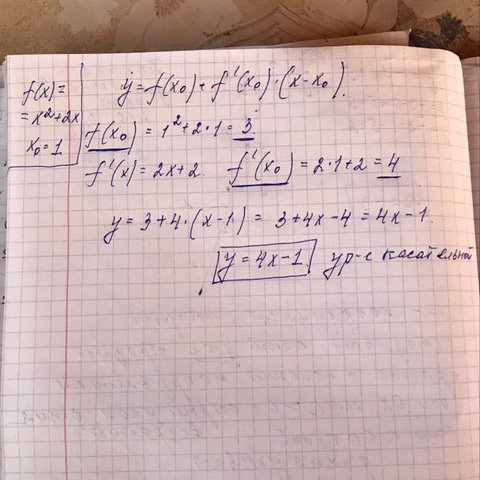 f(x)=
=x²+2x
x₀=1
y=f(x₀)+f'(x₀)·(x-x₀).
f(x₀) = 1²+2·1=3.
f'(x)=2x+2. f'(x₀)=2·1+2=4
y=3+4·(x-1)= 3+4x-4=4x-1.
y=4x-1. ур-е касательной